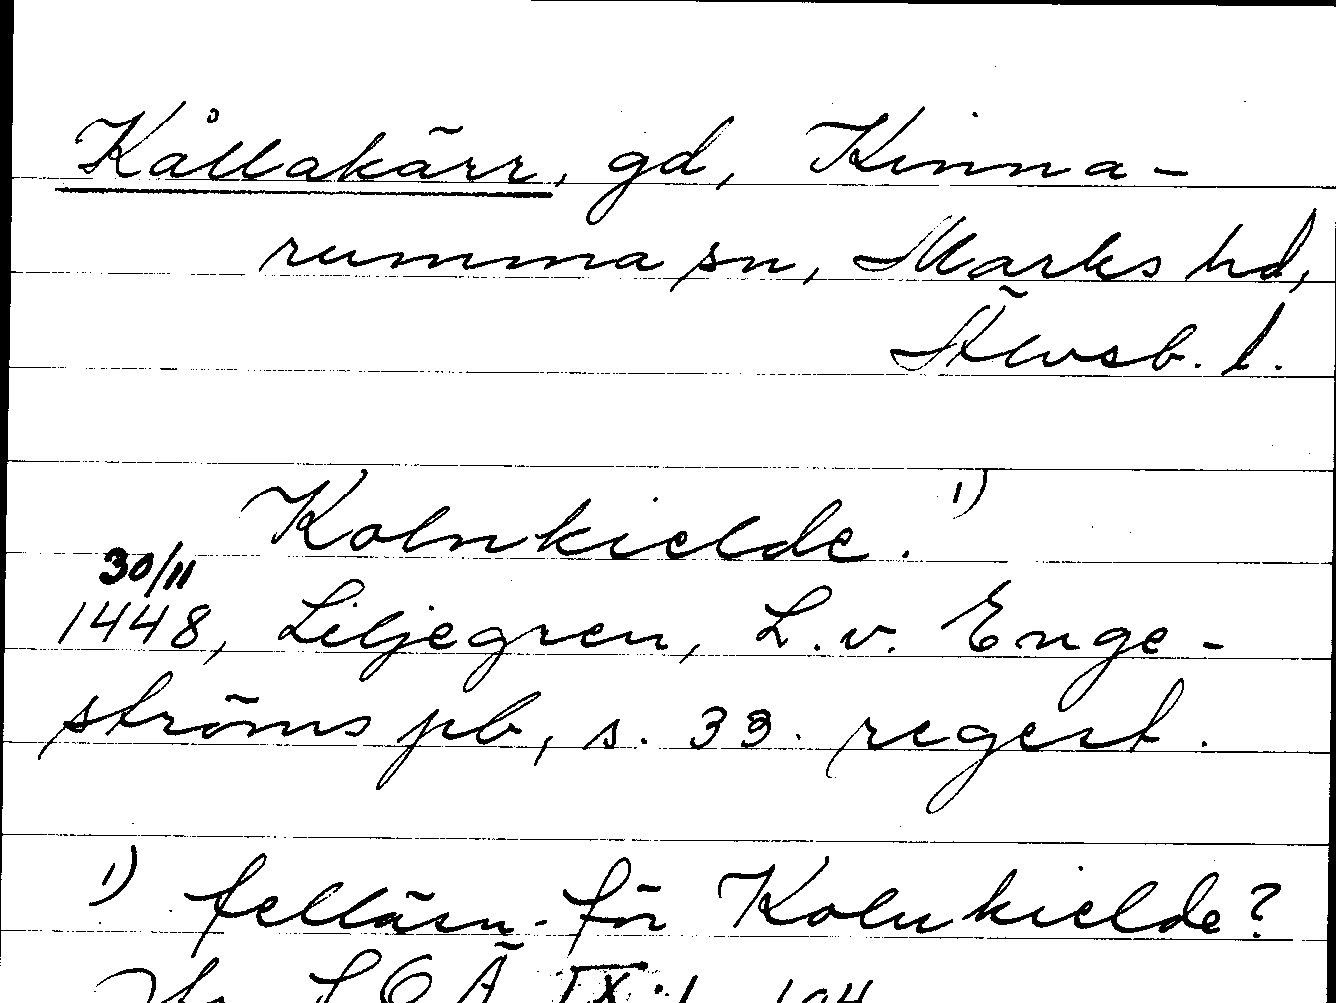 Kållakärr, gd, Kinna-
rumma sn, Marks hd,
Älvsb. l.
Kolnkielde. 1)
30/11
1448, Liljegren, L. v. Enge-
ströms pb, s. 33. regest.
1) felläsn. för Kolukielde?
Jfr SOÄ IX:1 104